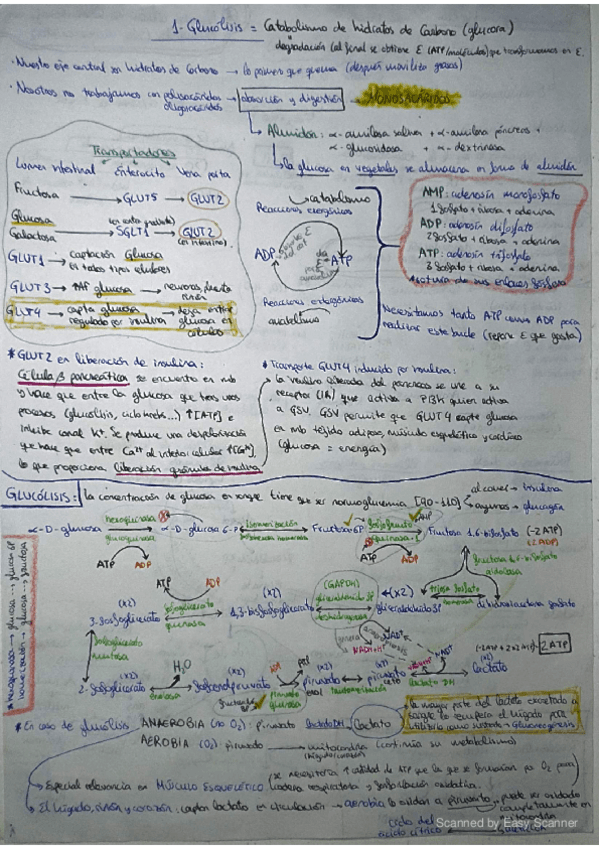 1- Glucólisis = Catabolismo de hidratos de carbono (glucosa)
degradación (al final se obtiene E (ATP/moléculas) que transformamos en E.
· Nuestro eje central son hidratos de carbono → lo primero que quema (después moviliza grasas)
· Nosotros no trabajamos con polisacáridos → absorción y digestión → MONOSACÁRIDOS.
oligosacáridos
Almidón: α-amilasa salival + α-amilasa páncreas +
α-glucosidasa + α-dextrinasa
la glucosa en vegetales se almacena en forma de almidón
Transportadores
Lumen intestinal enterocito vena porta
Fructosa → GLUT5 → GLUT2
Glucosa
Galactosa → SGLT1 → GLUT2
GLUT1 → captación glucosa
en todos tipos celulares
GLUT3 → glucosa → neuronas, placenta
GLUT4 → capta glucosa → deja entrar
regulado por insulina glucosa en
células
catabolismo
Reacciones exergónicas
ADP ATP
Reacciones endergónicas
anabolismo
AMP: adenosín monofosfato
1 fosfato + ribosa + adenina
ADP: adenosín difosfato
2 fosfato + ribosa + adenina
ATP: adenosín trifosfato
3 fosfato + ribosa + adenina
Necesitamos tanto ATP como ADP para
realizar este bucle (repone E que gasta)
* GLUT2 en liberación de insulina:
Célula β pancreática se encuentra en mb
y hace que entre la glucosa que tras unos
procesos (glucólisis, ciclo krebs...) ↑[ATP] e
inhibe canal K+. Se produce una despolarización
que hace que entre Ca2+ al interior celular
lo que proporciona liberación gránulos de insulina
* Transporte GLUT4 inducido por insulina:
la insulina liberada del páncreas se une a su
receptor (IR) que activa a PI3K quien activa
a GSV. GSV permite que GLUT4 capte glucosa
en mb tejido adiposo, músculo esquelético y cardíaco
(glucosa = energía)
GLUCÓLISIS: la concentración de glucosa en sangre tiene que ser normoglucemia [90-110]
al comer → insulina
ayunas → glucagón
α-D-glucosa hexoquinasa glucoquinasa α-D-glucosa 6-P isomerización Fructosa 6P Fructosa 1,6-bisfosfato (-2ATP)
(2ADP)
ATP ADP ATP ADP
fructosa 1,6-bisfosfato
aldolasa
ATP ADP
(x2) (x2) (GAPDH) (x2)
3-fosfoglicerato fosfoglicerato quinasa 1,3-bisfosfoglicerato gliceraldehído 3P deshidrogenasa gliceraldehído 3P triosa fosfato isomerasa dihidroxiacetona fosfato
fosfoglicerato
mutasa
H2O
2-fosfoglicerato enolasa fosfoenolpiruvato piruvato quinasa piruvato enol tautomerización piruvato ceto lactato DH Lactato
2ATP
* En caso de glucólisis ANAEROBIA (no O2): piruvato lactato DH Lactato
AEROBIA (O2): piruvato → mitocondria (continúa su metabolismo)
la mayor parte del lactato excretado a
sangre lo recupera el hígado para
utilizarlo como sustrato → Gluconeogénesis
Especial relevancia en MÚSCULO ESQUELÉTICO (se necesitaría ↑ cantidad de ATP que la que se formarían por O2 para)
cadena respiratoria y fosforilación oxidativa.
El hígado, riñón y corazón, captan lactato en circulación → aerobia lo oxidan a piruvato → puede ser oxidado
completamente en
mitocondria
ciclo del
ácido cítrico
Scanned by Easy Scanner